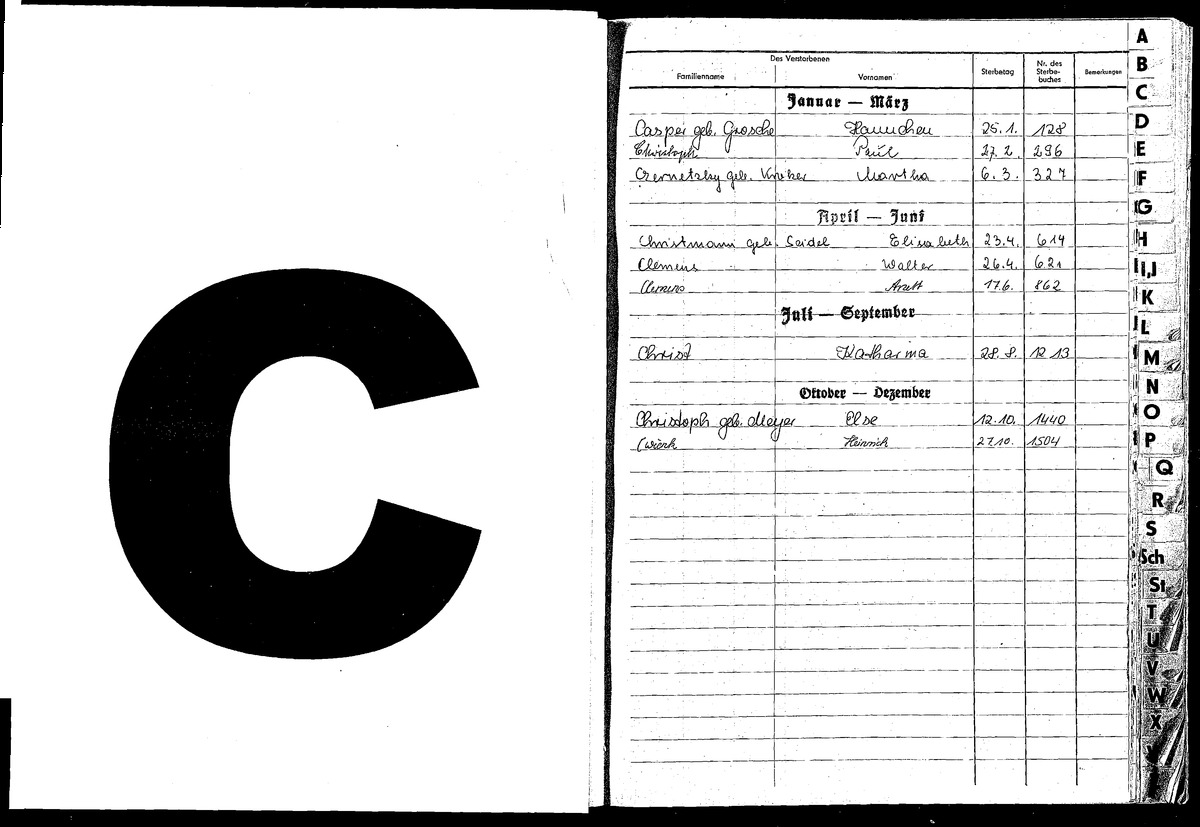 C
Des Verstorbenen
Familienname Vornamen Sterbetag Nr. des Sterbe-buches Bemerkungen
Januar — März
Casper geb. Grosche Hannchen 25.1. 128
Christoph Paul 27.2. 296
Czernetzky geb. Martha 6.3. 327
April — Juni
Christmann geb. Seidel Elisabeth 23.4. 614
Clemens Walter 26.4. 621
Clemens 17.6. 862
Juli — September
Christ Katharina 28.8. 1213
Oktober — Dezember
Christoph geb. Meyer Else 12.10. 1440
Heinrich 27.10. 1504
A
B
C
D
E
F
G
H
I,J
K
L
M
N
O
P
Q
R
S
Sch
St
T
U
V
W
X
Y